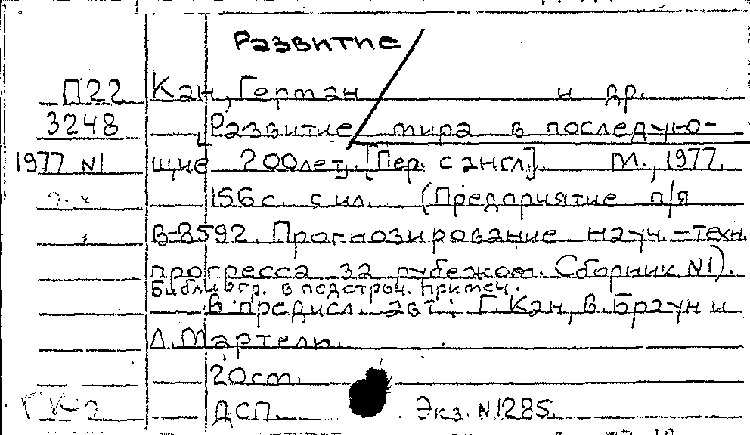 Развитие
П22 Кан, Герман и др.
3248 Развитие мира в последую-
1977 N1 щие 200 лет. [Пер. с англ.]. М., 1977.
156 с. с ил. (Предприятие п/я
В-8592. Прогнозирование науч.-техн.
прогресса за рубежом. Сборник N1).
Библиогр. в подстроч. примеч.
В предисл. авт.: Г. Кан, В. Браун и
Л. Мартель.
20 см.
ГК-2 ДСП Экз. N1285.